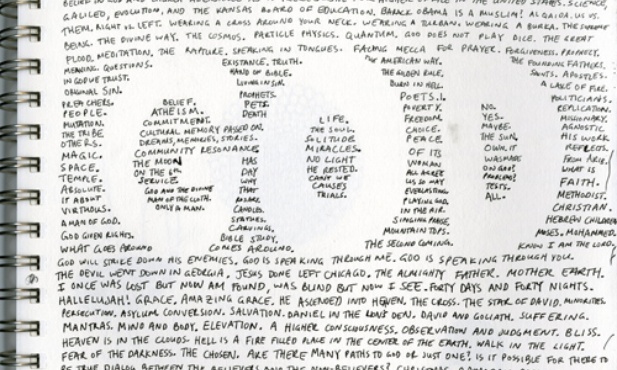 GALILEO, EVOLUTION, AND THE KANSAS BOARD OF EDUCATION. BARACK OBAMA IS A MUSLIM! AL QAIDA. US VS.
THEM. RIGHT VS. LEFT. WEARING A CROSS AROUND YOUR NECK. WEARING A TURBAN. WEARING A BURKA. THE
BEING. THE DIVINE WAY. THE COSMOS. PARTICLE PHYSICS. QUANTUM. GOD DOES NOT PLAY DICE. THE GREAT
FLOOD. MEDITATION. THE RAPTURE. SPEAKING IN TONGUES. FACING MECCA FOR PRAYER. FORGIVENESS. PROPHECY.
MEANING. QUESTIONS. EXISTENCE. TRUTH. THE AMERICAN WAY. THE FOUNDING FATHERS.
IN GOD WE TRUST. HAND OF BIBLE. THE GOLDEN RULE. SAINTS. APOSTLES.
ORIGINAL SIN. LIVING IN SIN. BURN IN HELL. A LAKE OF FIRE.
PREACHERS. BELIEF. PROPHETS. POETS. POLITICIANS.
PEOPLE. ATHEISM. PETS. POVERTY. NO. REPLICATION.
MUTATION. COMMITMENT. DEATH LIFE. FREEDOM. YES. MISSIONARY.
THE TRIBE CULTURAL MEMORY PASSED ON. THE SOUL. CHOICE. MAYBE. AGNOSTIC
OTHERS. DREAMS, MEMORIES, STORIES. SOLITUDE. PEACE THE SUN, HIS WORK
MAGIC. COMMUNITY RESONANCE MIRACLES. OF ITS OWN IT
SPACE. THE MOON HAS NO LIGHT WOMAN WAS MADE FROM
TEMPLE. ON THE 6TH DAY HE RESTED. ALL AGREE ON GOD! WHAT IS
ABSOLUTE. SERVICE WHY CAN'T WE US OR MAY PROBLEM? FAITH.
IT ABOUT GOD AND THE DIVINE THAT CAUSES EVERLASTING TESTS. METHODIST.
VIRTUOUS. MAN OF THE CLOTH. TRIALS. PLAYING GOD ALL. CHRISTIAN.
A MAN OF GOD. ONLY A MAN. CANDLES. IN THE AIR. HEBREW CHILDREN
GOD GIVEN RIGHTS. STATUES. CARVINGS. SINGING PRAISE MOUNTAIN TOPS. MOSES. MOHAMMED.
WHAT GOES AROUND BIBLE STUDY. COMES AROUND. THE SECOND COMING. KNOW I AM THE LORD.
GOD WILL STRIKE DOWN HIS ENEMIES. GOD IS SPEAKING THROUGH ME. GOD IS SPEAKING THROUGH YOU.
THE DEVIL WENT DOWN IN GEORGIA. JESUS DONE LEFT CHICAGO. THE ALMIGHTY FATHER. MOTHER EARTH.
I ONCE WAS LOST BUT NOW AM FOUND, WAS BLIND BUT NOW I SEE. FORTY DAYS AND FORTY NIGHTS.
HALLELUJAH! GRACE, AMAZING GRACE. HE ASCENDED INTO HEAVEN. THE CROSS. THE STAR OF DAVID. MINORITIES.
PERSECUTION. ASYLUM. CONVERSION. SALVATION. DANIEL IN THE LION'S DEN. DAVID AND GOLIATH. SUFFERING.
MANTRAS. MIND AND BODY. ELEVATION. A HIGHER CONSCIOUSNESS. OBSERVATION AND JUDGMENT. BLISS.
HEAVEN IS IN THE CLOUDS. HELL IS A FIRE FILLED PLACE IN THE CENTER OF THE EARTH. WALK IN THE LIGHT.
FEAR OF THE DARKNESS. THE CHOSEN. ARE THERE MANY PATHS TO GOD OR JUST ONE? IS IT POSSIBLE FOR THERE TO
BE TRUE DIALOG BETWEEN THE BELIEVERS AND THE NON-BELIEVERS?